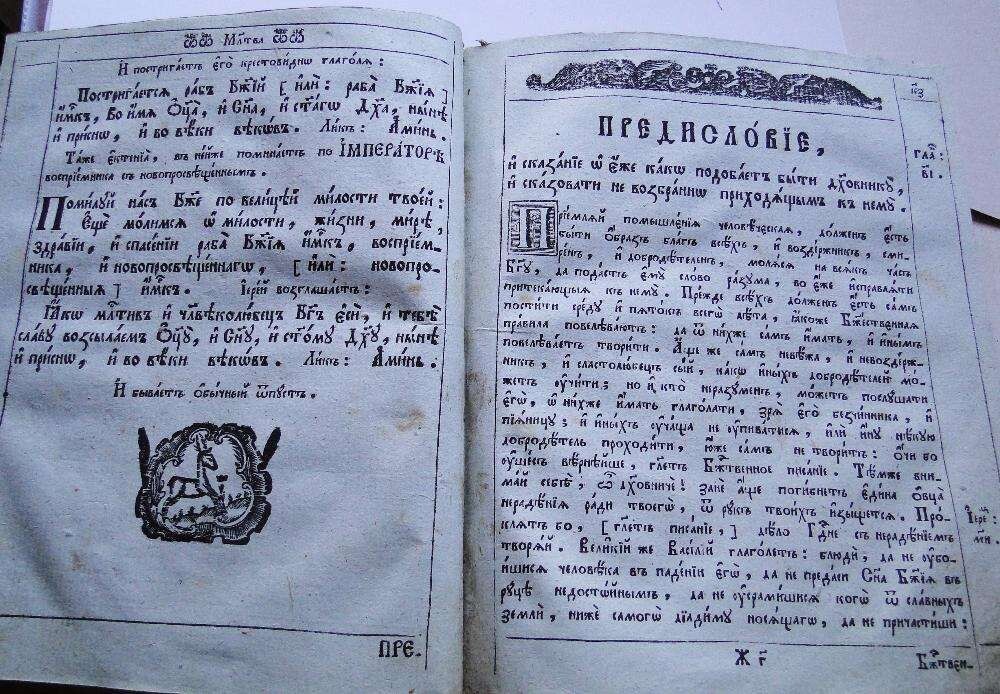 Мл҃твы
И҆ пострига́етъ є҆го̀ крестови́днѡ глаго́лѧ :
Пострига́етсѧ ра́бъ Бж҃їй [ и҆лѝ : раба̀ Бж҃їѧ ]
и҆м҃къ , Во и҆́мѧ Ѻ҆ц҃а̀ , и҆ Сн҃а , и҆ ст҃а́гѡ Дх҃а , ны́нѣ
и҆ при́снѡ , и҆ во вѣ́ки вѣкѡ́въ . Ли́къ : А҆ми́нь .
Та́же є҆ктенїа̀ , въ не́йже помина́етъ по И҆МПЕРА́ТОРѢ
воспрїе́мника съ новопросвѣще́ннымъ .
Поми́лꙋй на́съ Бж҃е по вели́цѣй ми́лости твое́й :
Е҆щѐ мо́лимсѧ ѡ҆ ми́лости , жи́зни , ми́рѣ ,
здра́вїи , и҆ спасе́нїи раба̀ Бж҃їѧ и҆м҃къ , воспрїе́м-
ника , и҆ новопросвѣще́ннагѡ , [ и҆лѝ : новопро-
свѣще́нныѧ ] и҆м҃къ . І҆ере́й возглаша́етъ :
Ꙗ҆́кѡ мл҃тивъ и҆ чл҃вѣколю́бецъ Бг҃ъ є҆сѝ , и҆ тебѣ̀
сла́вꙋ возсыла́емъ Ѻ҆ц҃ꙋ̀ , и҆ Сн҃ꙋ , и҆ ст҃о́мꙋ Дх҃ꙋ , ны́нѣ
и҆ при́снѡ , и҆ во вѣ́ки вѣкѡ́въ . Ли́къ : А҆ми́нь .
И҆ быва́етъ ѻ҆бы́чный ѿпꙋ́стъ .
ПРЕ-
ПРЕДИСЛО́ВЇЕ ,
и҆ сказа́нїе ѡ҆ є҆́же ка́кѡ подоба́етъ бы́ти дх҃о́вникꙋ ,
и҆ ска́зовати не возбра́ннѡ приходѧ́щымъ къ немꙋ̀ .
Прїе́млѧй помышлє́нїѧ человѣ́ческаѧ , до́лженъ є҆́сть
бы́ти ѻ҆́бразъ бла́гъ всѣ́хъ , и҆ возде́ржникъ , сми-
ре́нъ , и҆ добродѣ́теленъ , молѧ́сѧ на всѧ́къ ча́съ
Бг҃ꙋ , да пода́стъ є҆мꙋ̀ сло́во ра́зꙋма , во є҆́же и҆справлѧ́ти
притека́ющыѧ къ немꙋ̀ . Пре́жде всѣ́хъ до́лженъ є҆́сть са́мъ
пости́тисѧ сре́дꙋ и҆ пѧто́къ всегѡ̀ лѣ́та , ꙗ҆́коже Бж҃е́ственнаѧ
пра́вила повелѣва́ютъ : да ѿ ни́хже са́мъ и҆́мать , и҆ и҆ны́мъ
повелѣва́етъ твори́ти . А҆́ще же са́мъ невѣ́жа , и҆ невозде́рж-
никъ , и҆ сластолю́бецъ сы́й , ка́кѡ и҆ны́хъ добродѣ́телей мо́-
жетъ ᲂу҆чи́ти ; но и҆ кто̀ неразꙋ́менъ , мо́жетъ послꙋ́шати
є҆гѡ̀ , ѡ҆ ни́хже и҆́мать глаго́лати , зрѧ̀ є҆го̀ безчи́нника , и҆
пїѧ́ницꙋ ; и҆ и҆ны́хъ ᲂу҆ча́ща не ᲂу҆пива́тисѧ , и҆лѝ и҆́нꙋ нѣ́кꙋю
добродѣ́тель проходи́ти , ю҆́же са́мъ не твори́тъ : Ѻ҆́чи во
ᲂу҆ше́съ вѣрнѣ́йше , гл҃етъ Бж҃твенное писа́нїе . Тѣ́мже вни-
ма́й себѣ̀ , ѽ дх҃о́вниче ! занѐ а҆́ще поги́бнетъ є҆ди́на ѻ҆вца̀
нерадѣ́нїѧ ра́ди твоегѡ̀ , ѿ рꙋ́къ твои́хъ и҆зы́щетсѧ . Про́-
клѧтъ бо , [ гл҃етъ писа́нїе , ] дѣ́ло Гд҃не съ нерадѣ́нїемъ
творѧ́й . Вели́кїй же Васі́лїй глаго́летъ : блюдѝ , да не ᲂу҆бо-
и́шисѧ человѣ́ка въ паде́нїи є҆гѡ̀ , да не преда́си Сн҃а Бж҃їѧ въ
рꙋ́цѣ недосто́йнымъ , да не ᲂу҆срами́шисѧ когѡ̀ ѿ сла́вныхъ
землѝ , нижѐ самогѡ̀ дїади́мꙋ носѧ́щагѡ , да не причасти́ши :
гла́ :
в҃і .
І҆ере́ :
м҃и .
Ж г҃
Бж҃твен-